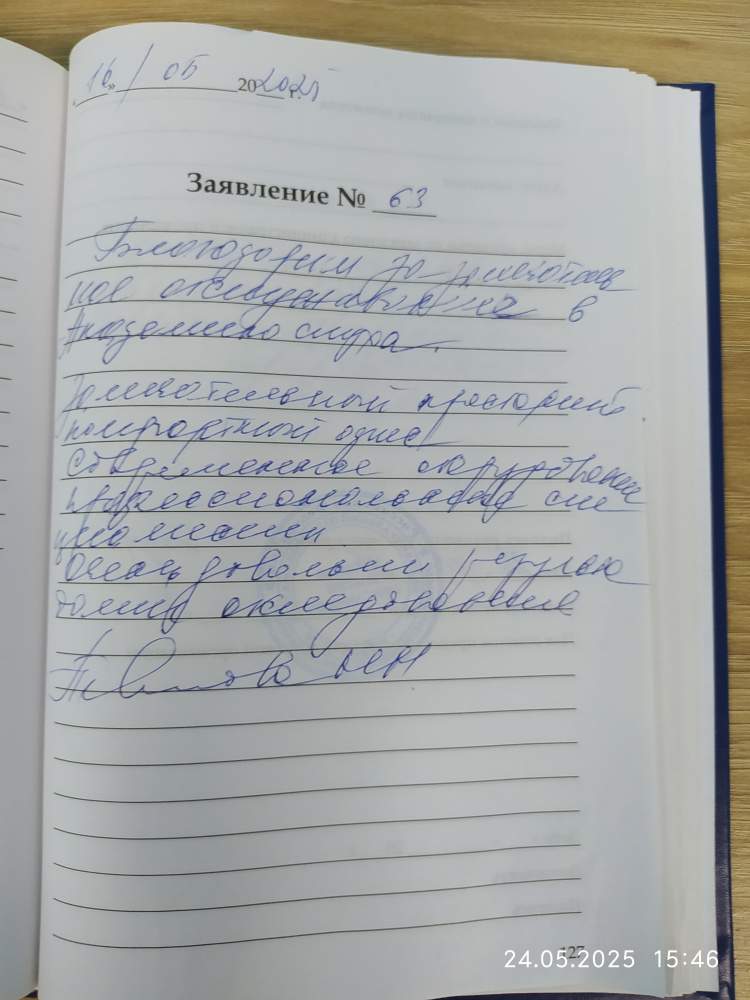 «16» / 05 202025 г.
Заявление № 63
Благодарим за замечатель
ное обследование в
Академию слуха.
Замечательный просторный
комфортный офис
Современное оборудование
профессиональные спе
циалисты
Очень довольны
обследования
НН
127
24.05.2025 15:46